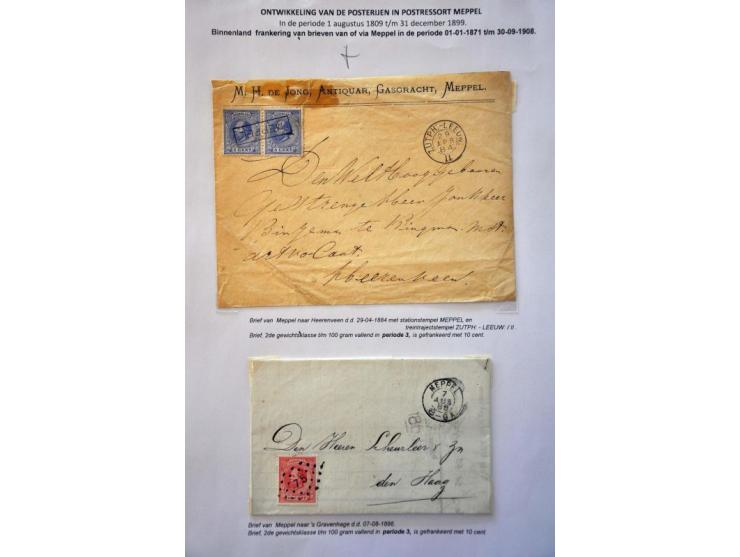 ONTWIKKELING VAN DE POSTERIJEN IN POSTRESSORT MEPPEL
In de periode 1 augustus 1809 t/m 31 december 1899.
Binnenland frankering van brieven van of via Meppel in de periode 01-01-1871 t/m 30-09-1908.
M. H. DE JONG, ANTIQUAR, GASGRACHT, MEPPEL.
5 CENT 5 CENT
ZUTPH.-LEEUW.
29
APR
84
II
Den WelHooggeboren
Gestrenge Heer Jonkheer
Binzema te Kingma
advocaat
Heerenveen
Brief van Meppel naar Heerenveen d.d. 29-04-1884 met stationstempel MEPPEL en
treintrajectstempel ZUTPH: - LEEUW: / II .
Brief, 2de gewichtsklasse t/m 100 gram vallend in periode 3, is gefrankeerd met 10 cent.
MEPPEL
7
AUG
Den Heeren Scheurleer & Zn
den Haag
75
Brief van Meppel naar 's Gravenhage d.d. 07-08-1886.
Brief, 2de gewichtsklasse t/m 100 gram vallend in periode 3, is gefrankeerd met 10 cent